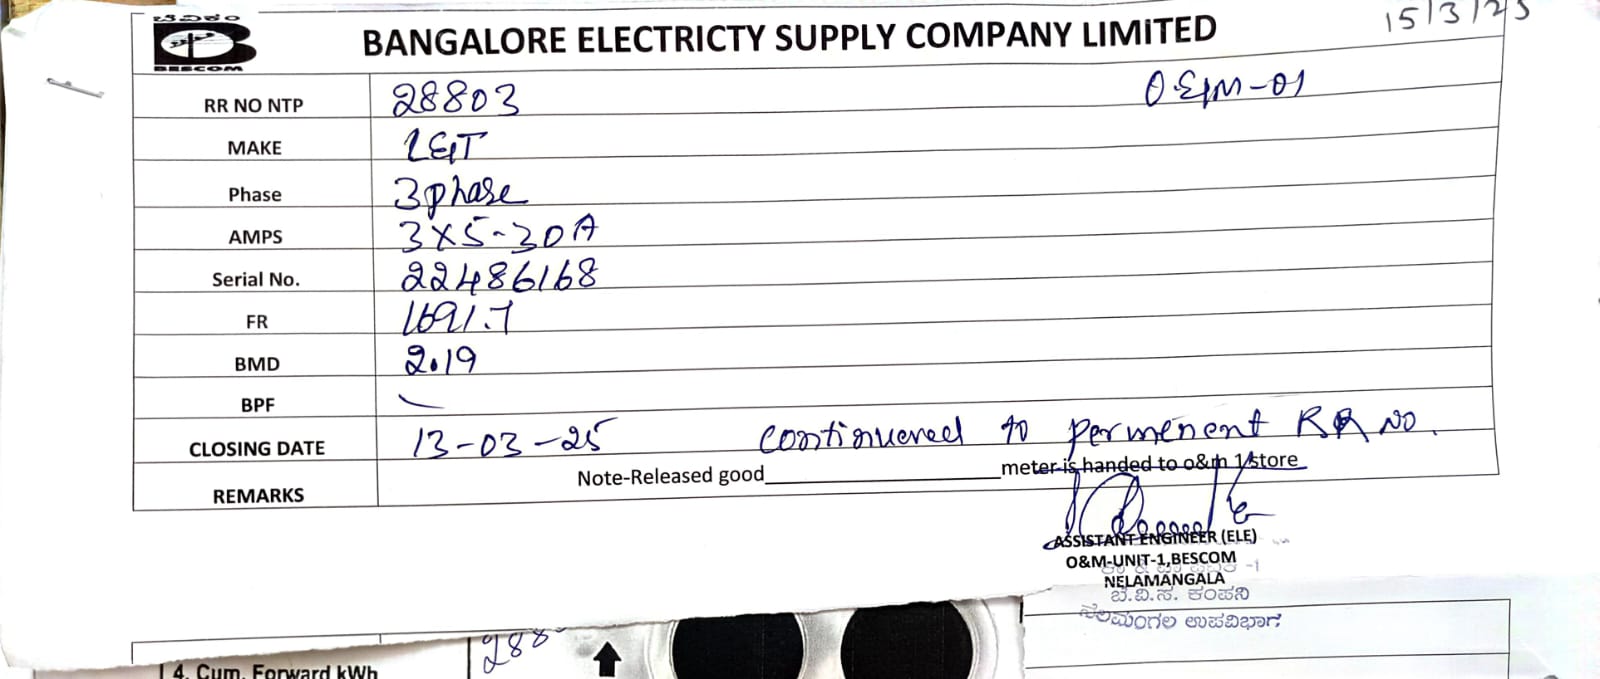 ಬೆವಿಕಂ
BESCOM
BANGALORE ELECTRICTY SUPPLY COMPANY LIMITED
15/3/25
RR NO NTP 28803 O&M-01
MAKE L&T
Phase 3phase
AMPS 3X5-30A
Serial No. 22486168
FR 1691.7
BMD 2.19
BPF
CLOSING DATE 13-03-25 continuened to permenent RR NO.
REMARKS Note-Released good____________________meter is handed to o&m 1/store
ASSISTANT ENGINEER (ELE)
O&M-UNIT-1,BESCOM
NELAMANGALA
ಬೆ.ವಿ.ಸ. ಕಂಪನಿ
ನೆಲಮಂಗಲ ಉಪವಿಭಾಗ
4. Cum. Forward kWh 288